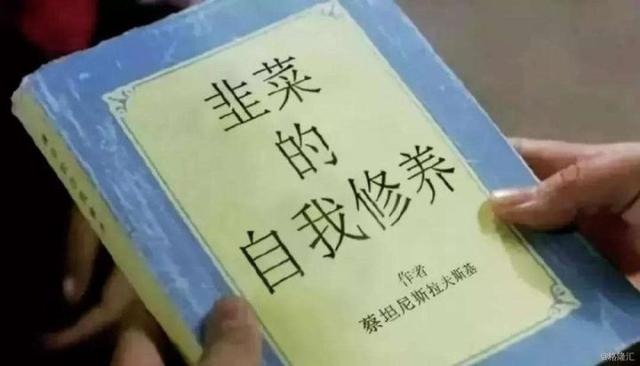 韭菜
的
自我修养
作者
蔡坦尼斯拉夫斯基
@格隆汇